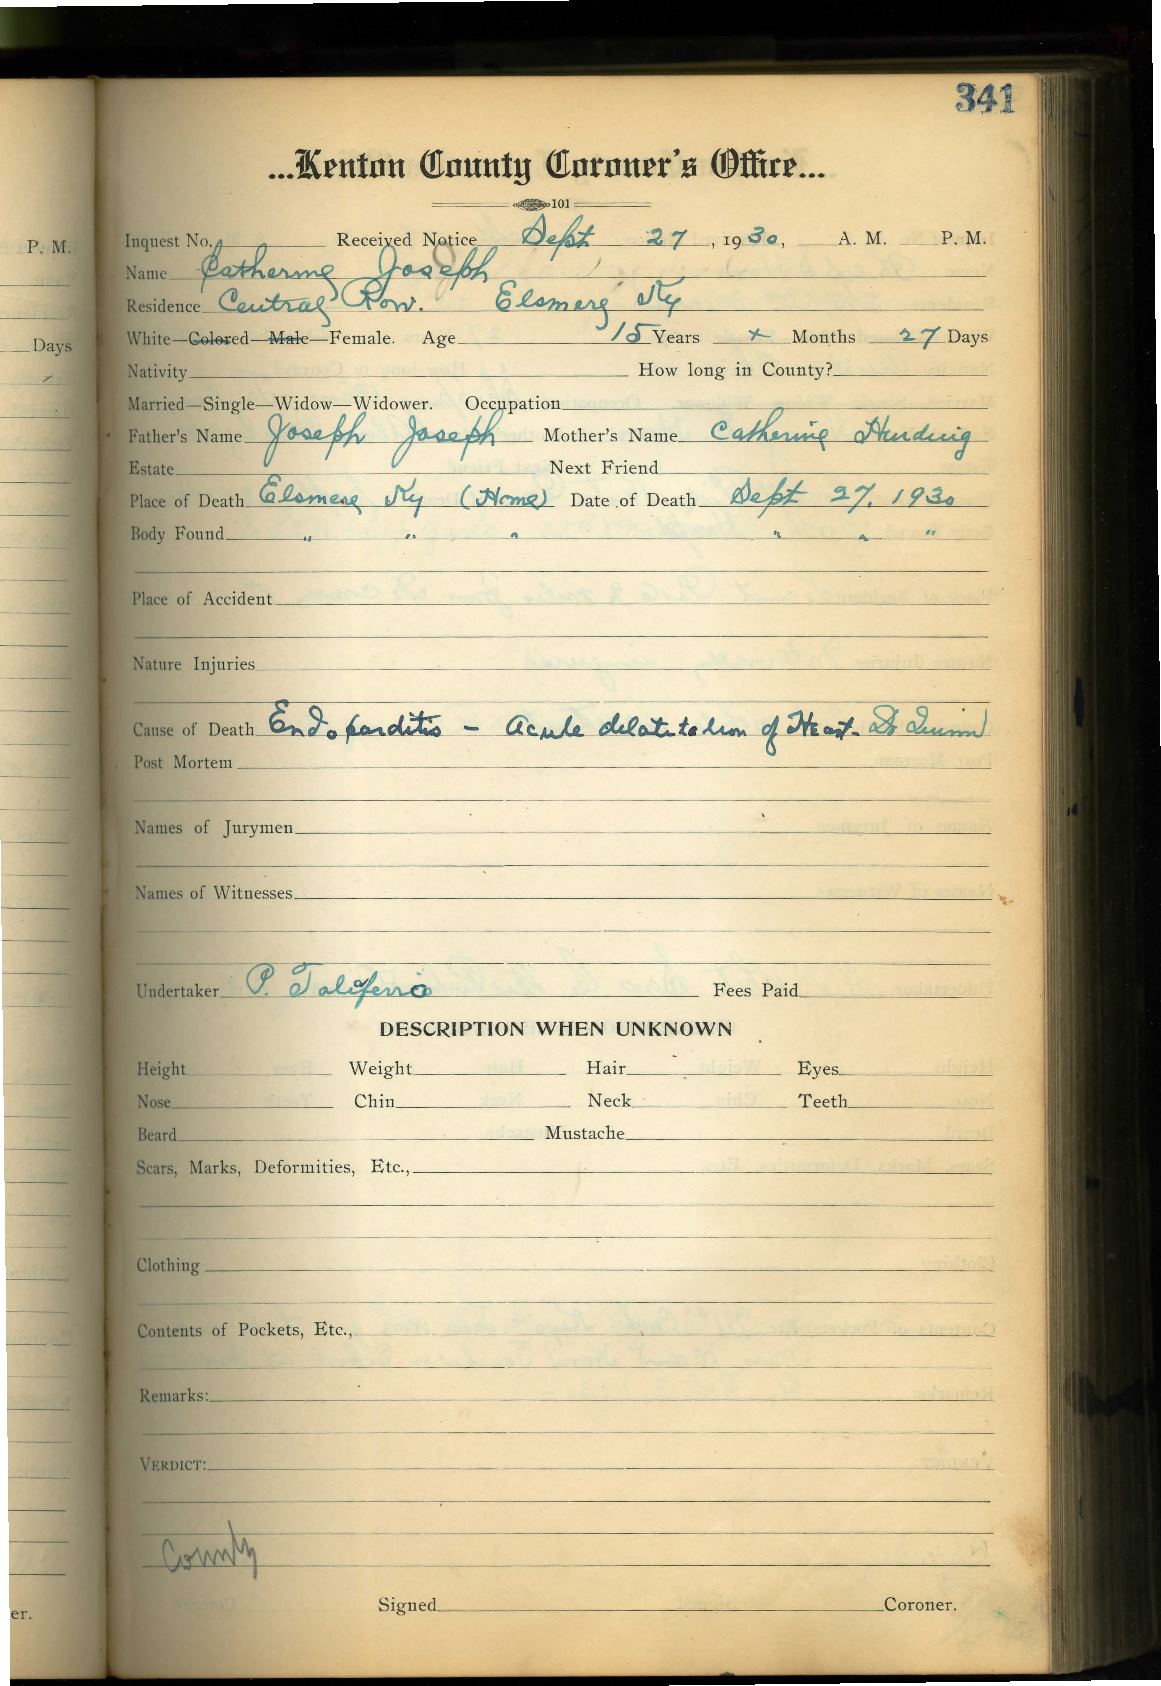 341
...Kenton County Coroner's Office...
101
P. M.
Inquest No. Received Notice Sept 27, 1930, A. M. P. M.
Name Catherine Joseph
Residence Central Row. Elsmere Ky
White—Colored—Male—Female. Age 15 Years x Months 27 Days
Days
Nativity How long in County?
Married—Single—Widow—Widower. Occupation
Father's Name Joseph Joseph Mother's Name Catherine
Estate Next Friend
Place of Death Elsmere Ky (Home) Date of Death Sept 27, 1930
Body Found " " " " " "
Place of Accident
Nature Injuries
Cause of Death Endocarditis – Acute delatitation of Heart. Dr Quinn
Post Mortem
Names of Jurymen
Names of Witnesses
Undertaker P. Taliferrio Fees Paid
DESCRIPTION WHEN UNKNOWN
Height Weight Hair Eyes
Nose Chin Neck Teeth
Beard Mustache
Scars, Marks, Deformities, Etc.,
Clothing
Contents of Pockets, Etc.,
Remarks:
VERDICT:
County
Signed Coroner.
er.